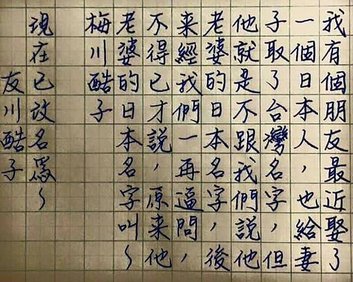 我有個朋友最近娶了
一個日本人，也給妻
子取了台灣名字，但
他就是不跟我們說他
老婆的日本名字，後
来經我們一再逼問，
不得已才說，原来他
老婆的日本名字叫～
梅川酷子
現在已改名爲～
友川酷子